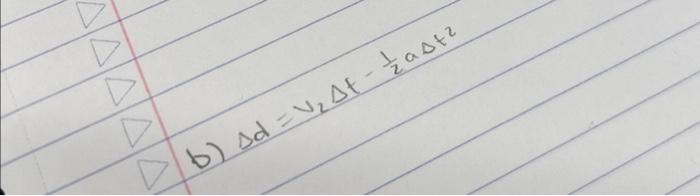 b) Δd = v₂Δt - ½aΔt²